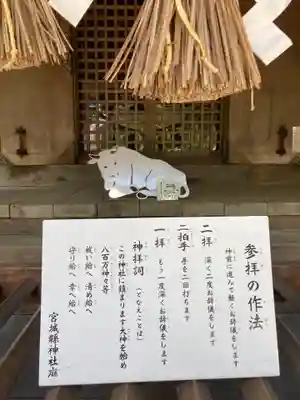 参拝の作法
神前に進んで軽くお辞儀をします
二拝 深く二度お辞儀をします
二拍手 手を二回打ちます
一拝 もう一度深くお辞儀をします
神拝詞(となえことば)
この神社に鎮まります大神を始め
八百万神々等
祓い給へ 清め給へ
守り給へ 幸へ給へ
宮城縣神社庁